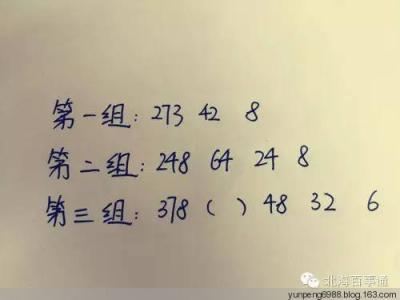 第一组: 273 42 8
第二组: 248 64 24 8
第三组: 378 ( ) 48 32 6
北海百事通
yunpeng6988.blog.163.com